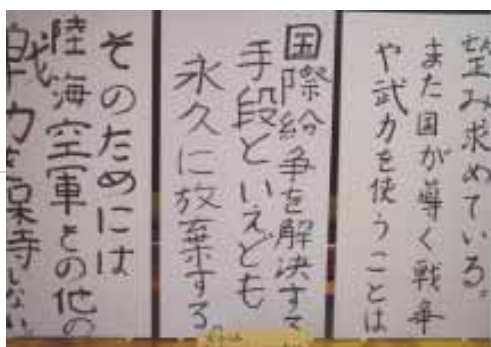 望み求めている。
また国が導く戦争
や武力を使うことは
国際紛争を解決する
手段といえども
永久に放棄する。
そのためには
陸海空軍その他の
戦力を保持しない。